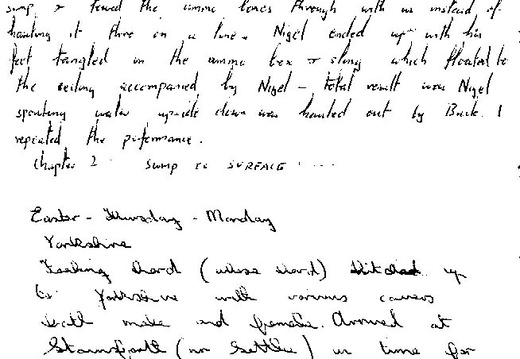 sump & towed the ammo boxes through with us instead of
hauling it thro on a line. Nigel ended up with his
feet tangled in the ammo box & sling which floated to
the ceiling accompanied by Nigel - total result was Nigel
spouting water upside down was hauled out by Buck. I
repeated the performance.
Chapter 2 Sump to SURFACE ....
Easter - Thursday - Monday
Yorkshire
Feeling hard (whose hard) hitched up
to Yorkshire with various cavers
both male and female. Arrived at
Stainforth (nr Settle) in time for